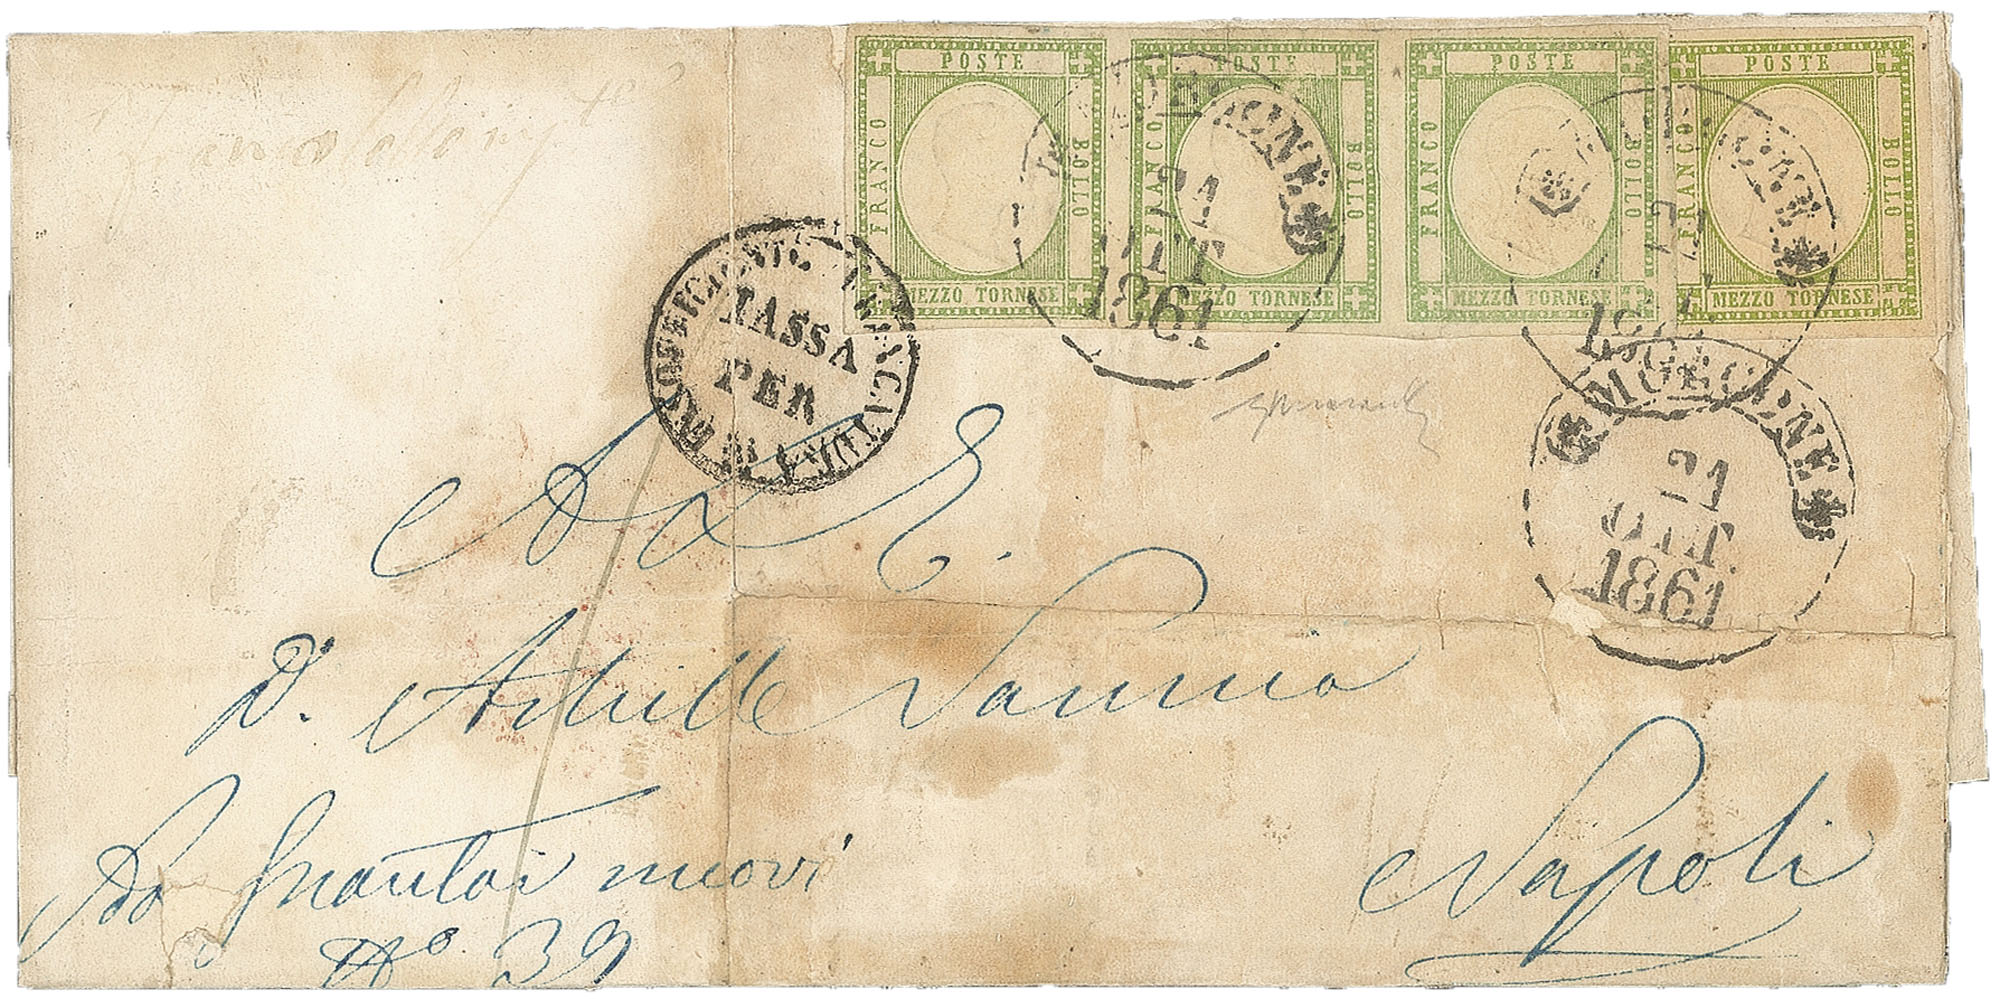 POSTE
FRANCO
BOLLO
MEZZO TORNESE
POSTE
FRANCO
BOLLO
MEZZO TORNESE
POSTE
FRANCO
BOLLO
MEZZO TORNESE
POSTE
FRANCO
BOLLO
MEZZO TORNESE
21
OTT
1861
21
TASSA
PER
MORCONE
21
OTT.
1861
A S. E.
D. Achille Sannia
Guantai nuovi
N.º 39
Napoli